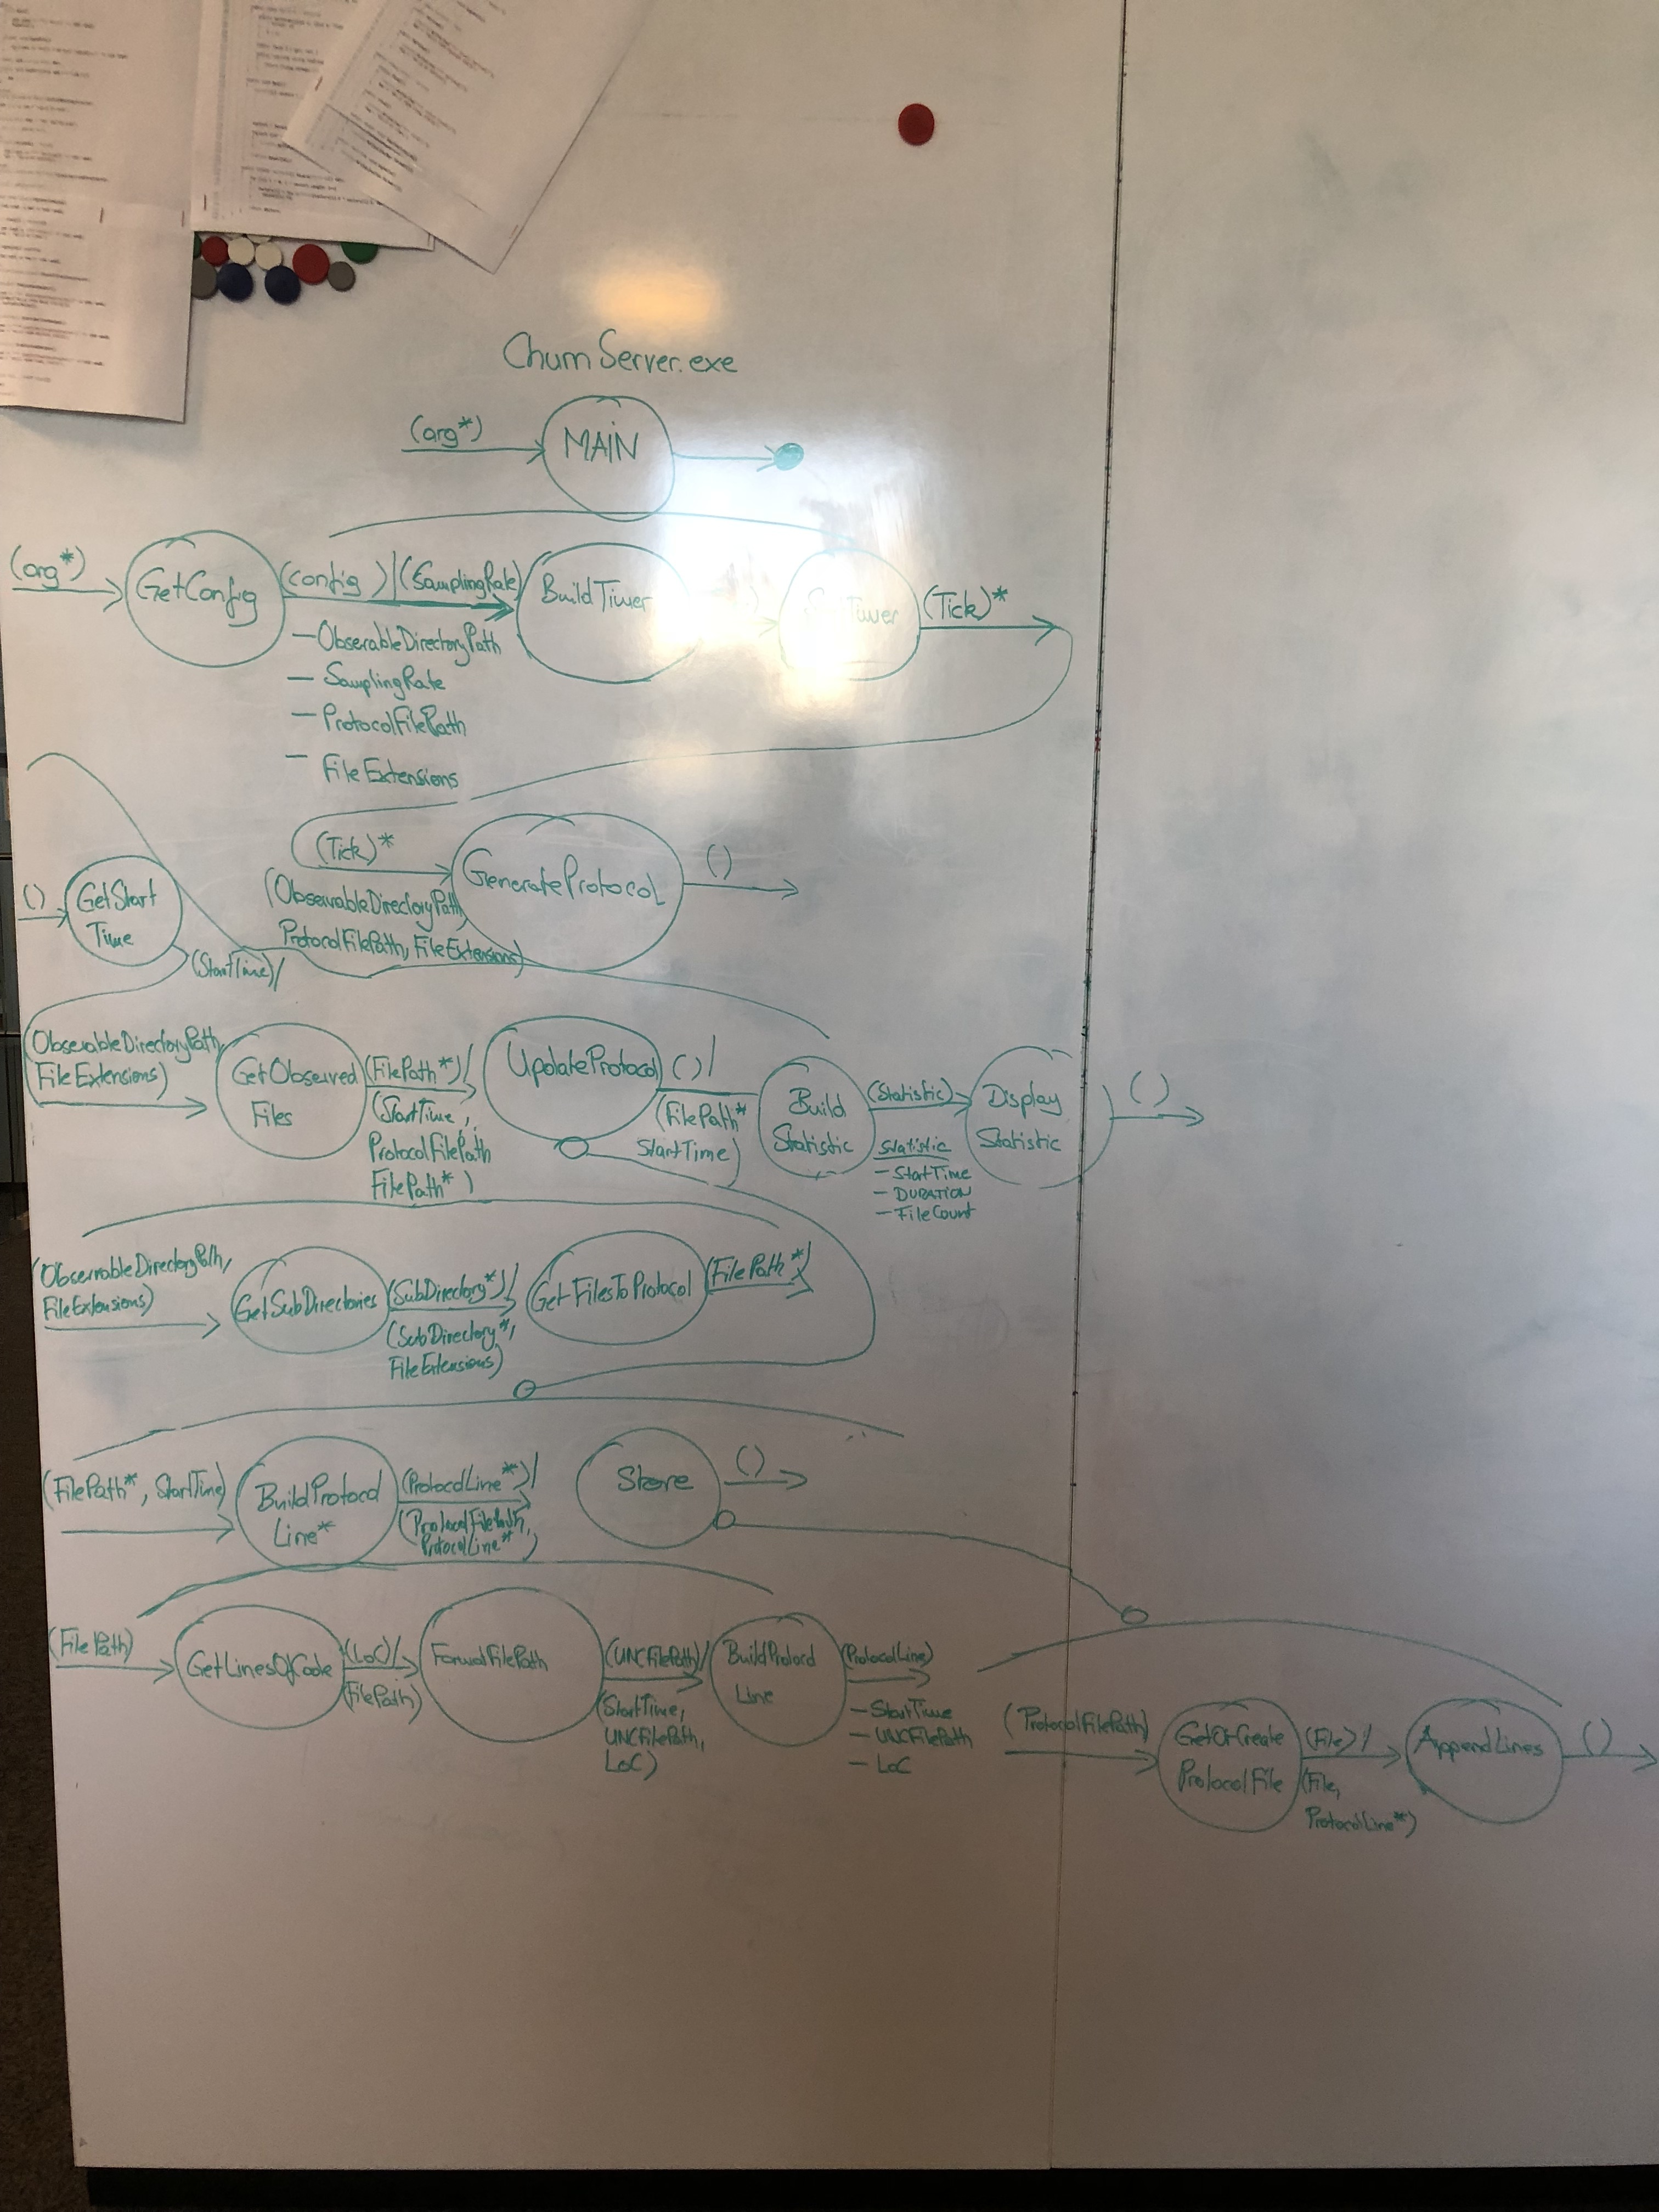 Churn Server.exe
(arg*)
MAIN
(arg*)
GetConfig
(config )/(SamplingRate)
BuildTimer
Timer
(Tick)*
— ObserableDirectoryPath
— SamplingRate
— ProtocolFilePath
— FileExtensions
(Tick)*
(ObservableDirectoryPath,
ProtocolFilePath, FileExtensions)
GenerateProtocol
()
()
GetStart
Time
(StartTime)/
ObserableDirectoryPath,
FileExtensions)
GetObserved
Files
(FilePath*)/
(StartTime,
ProtocolFilePath
FilePath*)
UpdateProtocol
()/
(FilePath*
StartTime)
Build
Statistic
(Statistic)
Statistic
— StartTime
— DURATION
— FileCount
Display
Statistic
()
(ObservableDirectoryPath,
FileExtensions)
GetSubDirectories
(SubDirectory*)/
(SubDirectory*,
FileExtensions)
GetFilesToProtocol
(FilePath*)
(FilePath*, StartTime)
BuildProtocol
Line*
(ProtocolLine*)/
(ProtocolFilePath,
ProtocolLine*)
Store
()
(FilePath)
GetLinesOfCode
(LoC)/
(FilePath)
FormatFilePath
(UNCFilePath)/
(StartTime,
UNCFilePath,
LoC)
BuildProtocol
Line
(ProtocolLine)
— StartTime
— UNCFilePath
— LoC
(ProtocolFilePath)
GetOrCreate
ProtocolFile
(File)/
(File,
ProtocolLine*)
AppendLines
()